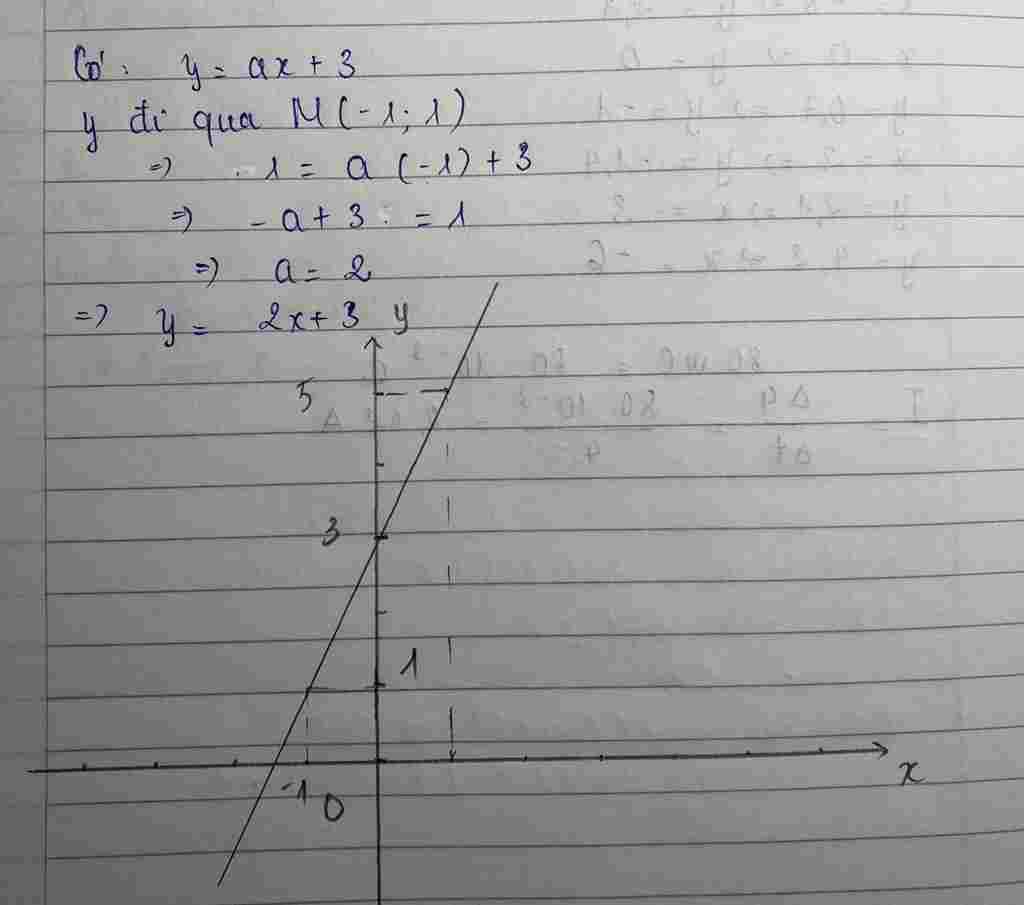 Có: y = ax + 3
y đi qua M(-1; 1)
=> 1 = a (-1) + 3
=> -a + 3 = 1
=> a = 2
=> y = 2x + 3
y
5
3
1
-1
0
x